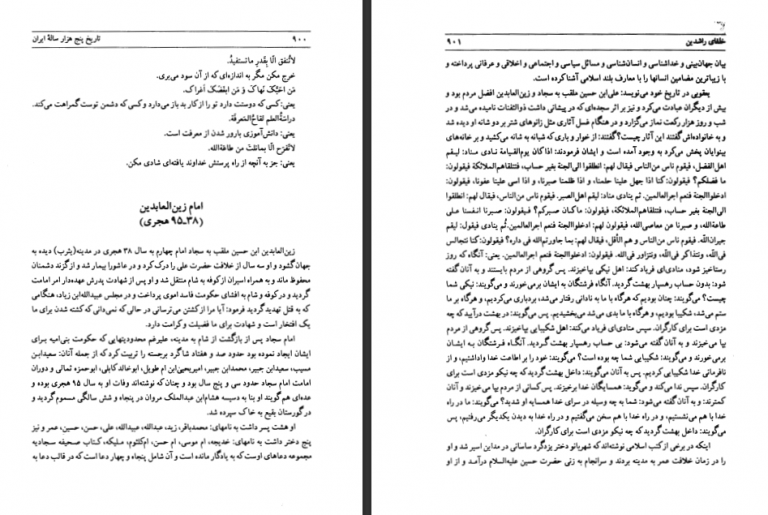 ۹۰۰
تاریخ پنج هزار سالهٔ ایران
لاتُنفق الّا بِقَدرِ ماتستفیدُ.
خرج مکن مگر به اندازه‌ای که از آن سود می‌بری.
مَن احَبَّکَ نَهاکَ وَ مَن ابغَضَکَ اَغراکَ.
یعنی: کسی که دوستت دارد تو را از کار بد باز می‌دارد و کسی که دشمن توست گمراهت می‌کند.
دراسةُ العلم لقاحُ المَعرِفَة.
یعنی: دانش‌آموزی بارور شدن از معرفت است.
لاتَفرَح الّا بماتلت من طاعَةِ‌الله.
یعنی: جز به آنچه از راه پرستش خداوند یافته‌ای شادی مکن.
امام زین‌العابدین
(۳۸ـ۹۵ هجری)
زین‌العابدین ابن حسین ملقب به سجاد امام چهارم به سال ۳۸ هجری در مدینه (یثرب) دیده به
جهان گشود و او سه سال از خلافت حضرت علی را درک کرد و در عاشورا بیمار شد و از گزند دشمنان
محفوظ ماند و به همراه اسیران از کوفه به شام منتقل شد و او پس از شهادت پدرش عهده‌دار امر امامت
گردید و در کوفه و شام به افشای حکومت فاسد اموی پرداخت و در مجلس عبیدالله‌ابن زیاد، هنگامی
که به قتل تهدید گردید فرمود: آیا مرا از کشتن می‌ترسانی در حالی که نمی‌دانی که کشته شدن برای ما
یک افتخار است و شهادت برای ما فضیلت و کرامت دارد.
امام سجاد پس از بازگشت از شام به مدینه، علیرغم محدودیتهایی که حکومت بنی‌امیه برای
ایشان ایجاد نموده بود حدود صد و هفتاد شاگرد برجسته را تربیت کرد که از جمله آنان: سعیدابن
مسیب، سعیدابن جبیر، محمدابن جبیر، امیریحیی‌ابن ام طویل، ابوخالد کابلی، ابوحمزه ثمالی و دوران
امامت امام سجاد حدود سی و پنج سال بود و چنان که نوشته‌اند وفات او به سال ۹۵ هجری بوده و
عده‌ای هم گویند او بنا به دسیسه هشام‌ابن عبدالملک مروان در پنجاه و شش سالگی مسموم گردید و
در گورستان بقیع به خاک سپرده شد.
او هشت پسر داشت به نامهای: محمدباقر، زید، عبدالله، عبیدالله، علی، حسن، حسین، عمر و نیز
پنج دختر داشت به نامهای: خدیجه، ام موسی، ام حسن، ام‌کلثوم، ملیکه، کتاب صحیفه سجادیه
مجموعه دعاهای اوست که به یادگار مانده است و آن شامل پنجاه و چهار دعا است که در قالب دعا به
خلفای راشدین
۹۰۱
بیان جهان‌بینی و خداشناسی و انسان‌شناسی و مسائل سیاسی و اجتماعی و اخلاقی و عرفانی پرداخته و
با زیباترین مضامین انسانها را با معارف بلند اسلامی آشنا کرده است.
یعقوبی در تاریخ خود می‌نویسد: علی‌ابن حسین ملقب به سجاد و زین‌العابدین افضل مردم بود و
بیش از دیگران عبادت می‌کرد و نیز بر اثر سجده‌ای که در پیشانی داشت ذوالثفنات نامیده می‌شد و در
شب و روز هزار رکعت نماز می‌گزارد و در هنگام غسل آثاری مثل زانوهای شتر بر دو شانه او دیده شد
و به خانواده‌اش گفتند این آثار چیست؟ گفتند: از خوار و باری که شبانه به شانه می‌کشید و بر خانه‌های
بینوایان پخش می‌کرد به وجود آمده است و ایشان فرمودند: اذا کان یوم‌القیامة نادی مناد: لیقم
اهل‌الفضل، فیقوم ناس من‌الناس فیقال لهم: انطلقوا الی‌الجنة بغیر حساب، فتتلقاهم‌الملائکة فیقولون:
ما فضلکم؟ فیقولون: کنا اذا جهل علینا حلمنا، و اذا ظلمنا صبرنا، و اذا اسی علینا عفونا، فیقولون:
ادخلوا الجنة فنعم اجرالعاملین. ثم ینادی مناد: لیقم اهل‌الصبر. فیقوم ناس من‌الناس، فیقال لهم: انطلقوا
الی‌الجنة بغیر حساب، فتتلقاهم‌الملائکة، فیقولون: ماکان صبرکم؟ فیقولون: صبرنا انفسنا علی
طاعةالله، و صبرنا عن معاصی‌الله، فیقولون: ادخلوا الجنة فنعم اجرالعاملین. ثُم ینادی فیقول: لیقم
جیران‌الله. فیقوم ناس من‌الناس و هم الأقل، فیقال لهم: بما جاورتم‌الله فی داره؟ فیقولون: کنا نتجالس
فی‌الله، ونتذاکر فی‌الله، ونتزاور فی‌الله. فیقولون: ادخلوا الجنة فنعم اجرالعاملین. یعنی: آنگاه که روز
رستاخیز شود، منادی‌ای فریاد کند: اهل نیکی بپاخیزند. پس گروهی از مردم بایستند و به آنان گفته
شود: بدون حساب رهسپار بهشت گردید. آنگاه فرشتگان به ایشان برمی‌خورند و می‌گویند: نیکی شما
چیست؟ می‌گویند: چنان بودیم که هرگاه با ما به نادانی رفتار می‌شد، بردباری می‌کردیم، و هرگاه بر ما
ستم می‌شد، شکیبا بودیم، و هرگاه با ما بدی می‌شد می‌بخشیدیم. پس می‌گویند: در بهشت درآیید که چه
مزدی است برای کارگران. سپس منادی‌ای فریاد می‌کند: اهل شکیبایی بپاخیزند. پس گروهی از مردم
بپا می‌خیزند و به آنان گفته می‌شود: بی حساب رهسپار بهشت گردید. آنگاه فرشتگان به ایشان
برمی‌خورند و می‌گویند: شکیبایی شما چه بوده است؟ می‌گویند: خود را بر اطاعت خدا واداشتیم، و از
نافرمانی خدا شکیبایی کردیم. پس به آنان می‌گویند: داخل بهشت گردید که چه نیکو مزدی است برای
کارگران. سپس ندا می‌کند و می‌گوید: همسایگان خدا برخیزند. پس کسانی از مردم بپا می‌خیزند و آنان
کمترند: و به آنان گفته می‌شود: شما به چه وسیله در سرای خدا همسایه او شدید؟ می‌گویند: ما در راه
خدا با هم می‌نشستیم، و در راه خدا با هم سخن می‌گفتیم و در راه خدا به دیدن یکدیگر می‌رفتیم، پس
می‌گویند: داخل بهشت گردید که چه نیکو مزدی است برای کارگران.
اینکه در برخی از کتب اسلامی نوشته‌اند که شهربانو دختر یزدگرد ساسانی در مداین اسیر شد و او
را در زمان خلافت عمر به مدینه بردند و سرانجام به زنی حضرت حسین علیه‌السلام درآمد و از او